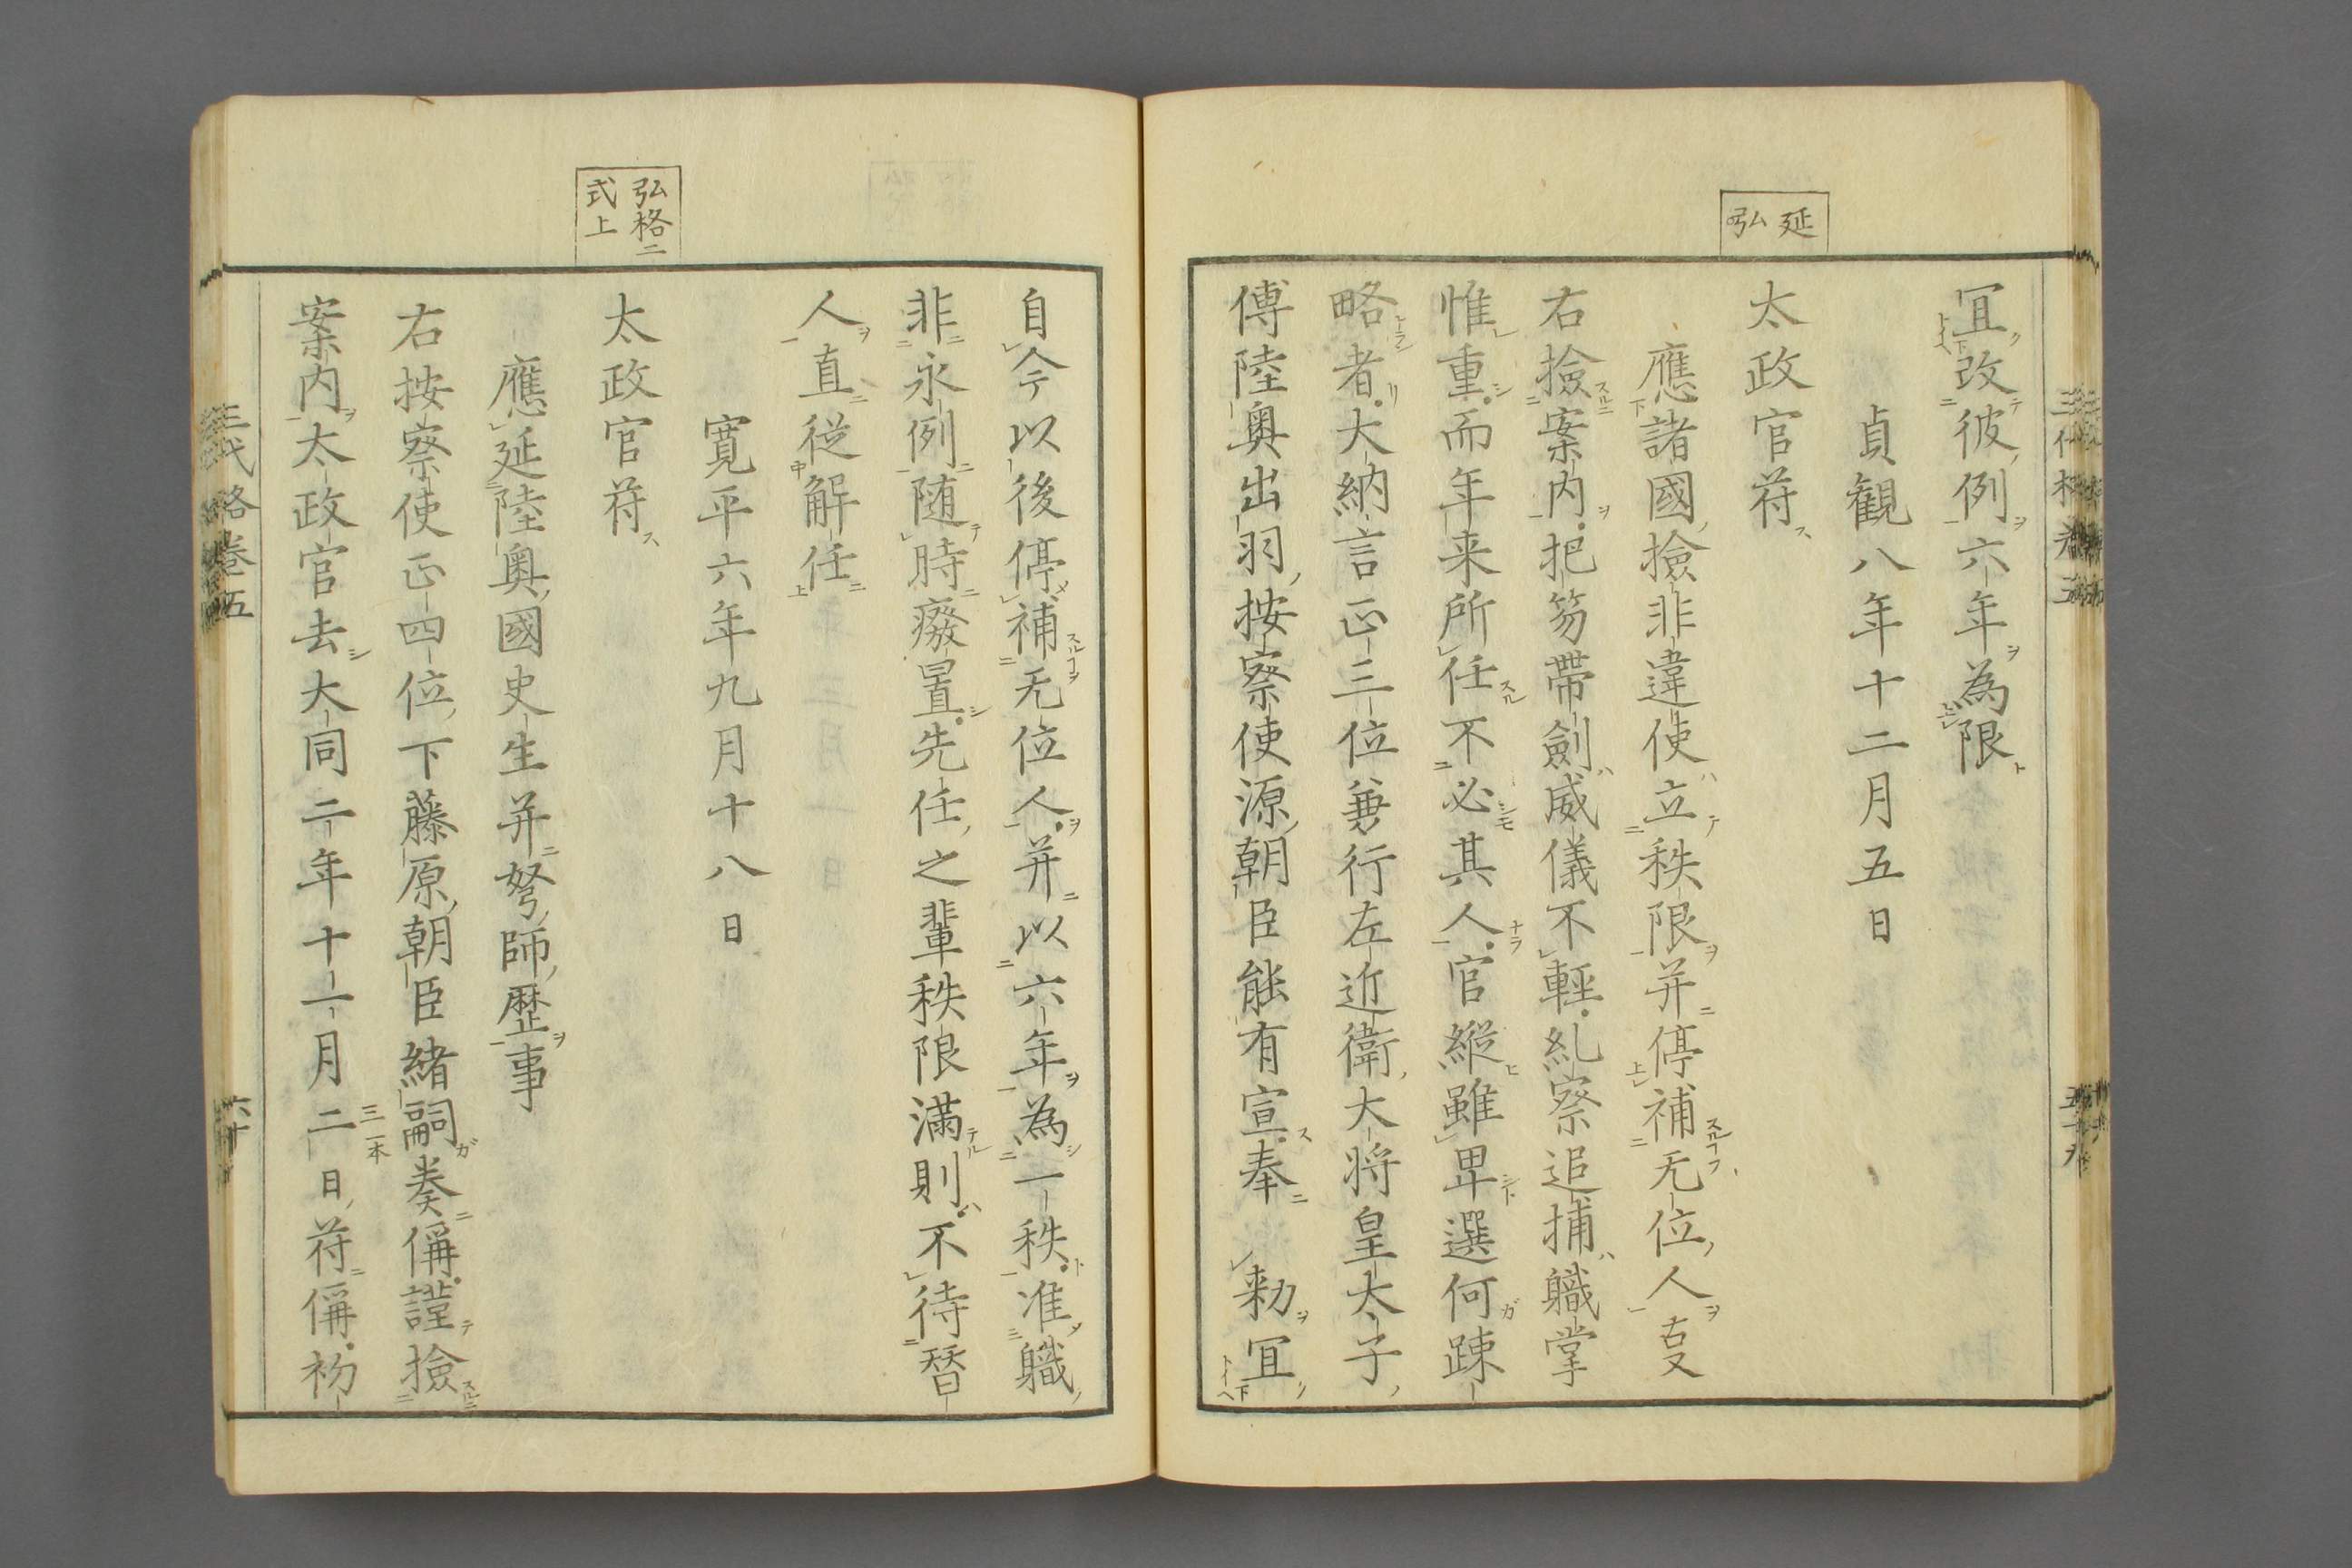 延
弘
宜改彼例六年為限
貞観八年十二月五日
太政官符
應諸國撿非違使立秩限并停補无位人叓
右撿案内把笏帶劍威儀不輕糺察追捕職掌
惟重而年来所任不必其人官縦雖卑選何踈
略者大納言正三位兼行左近衛大将皇太子
傅陸奥出羽按察使源朝臣能有宣奉　勅宜
弘格二
式上
自今以後停補无位人并以六年為一秩准職
非永例随時癈置先任之輩秩限満則不待替
人直従解任
寛平六年九月十八日
太政官符
應延陸奥國史生并弩師歴事
右按察使正四位下藤原朝臣緒嗣奏偁謹撿
案内太政官去大同二年十一月二日符偁初
三一本
三代格卷五
六十